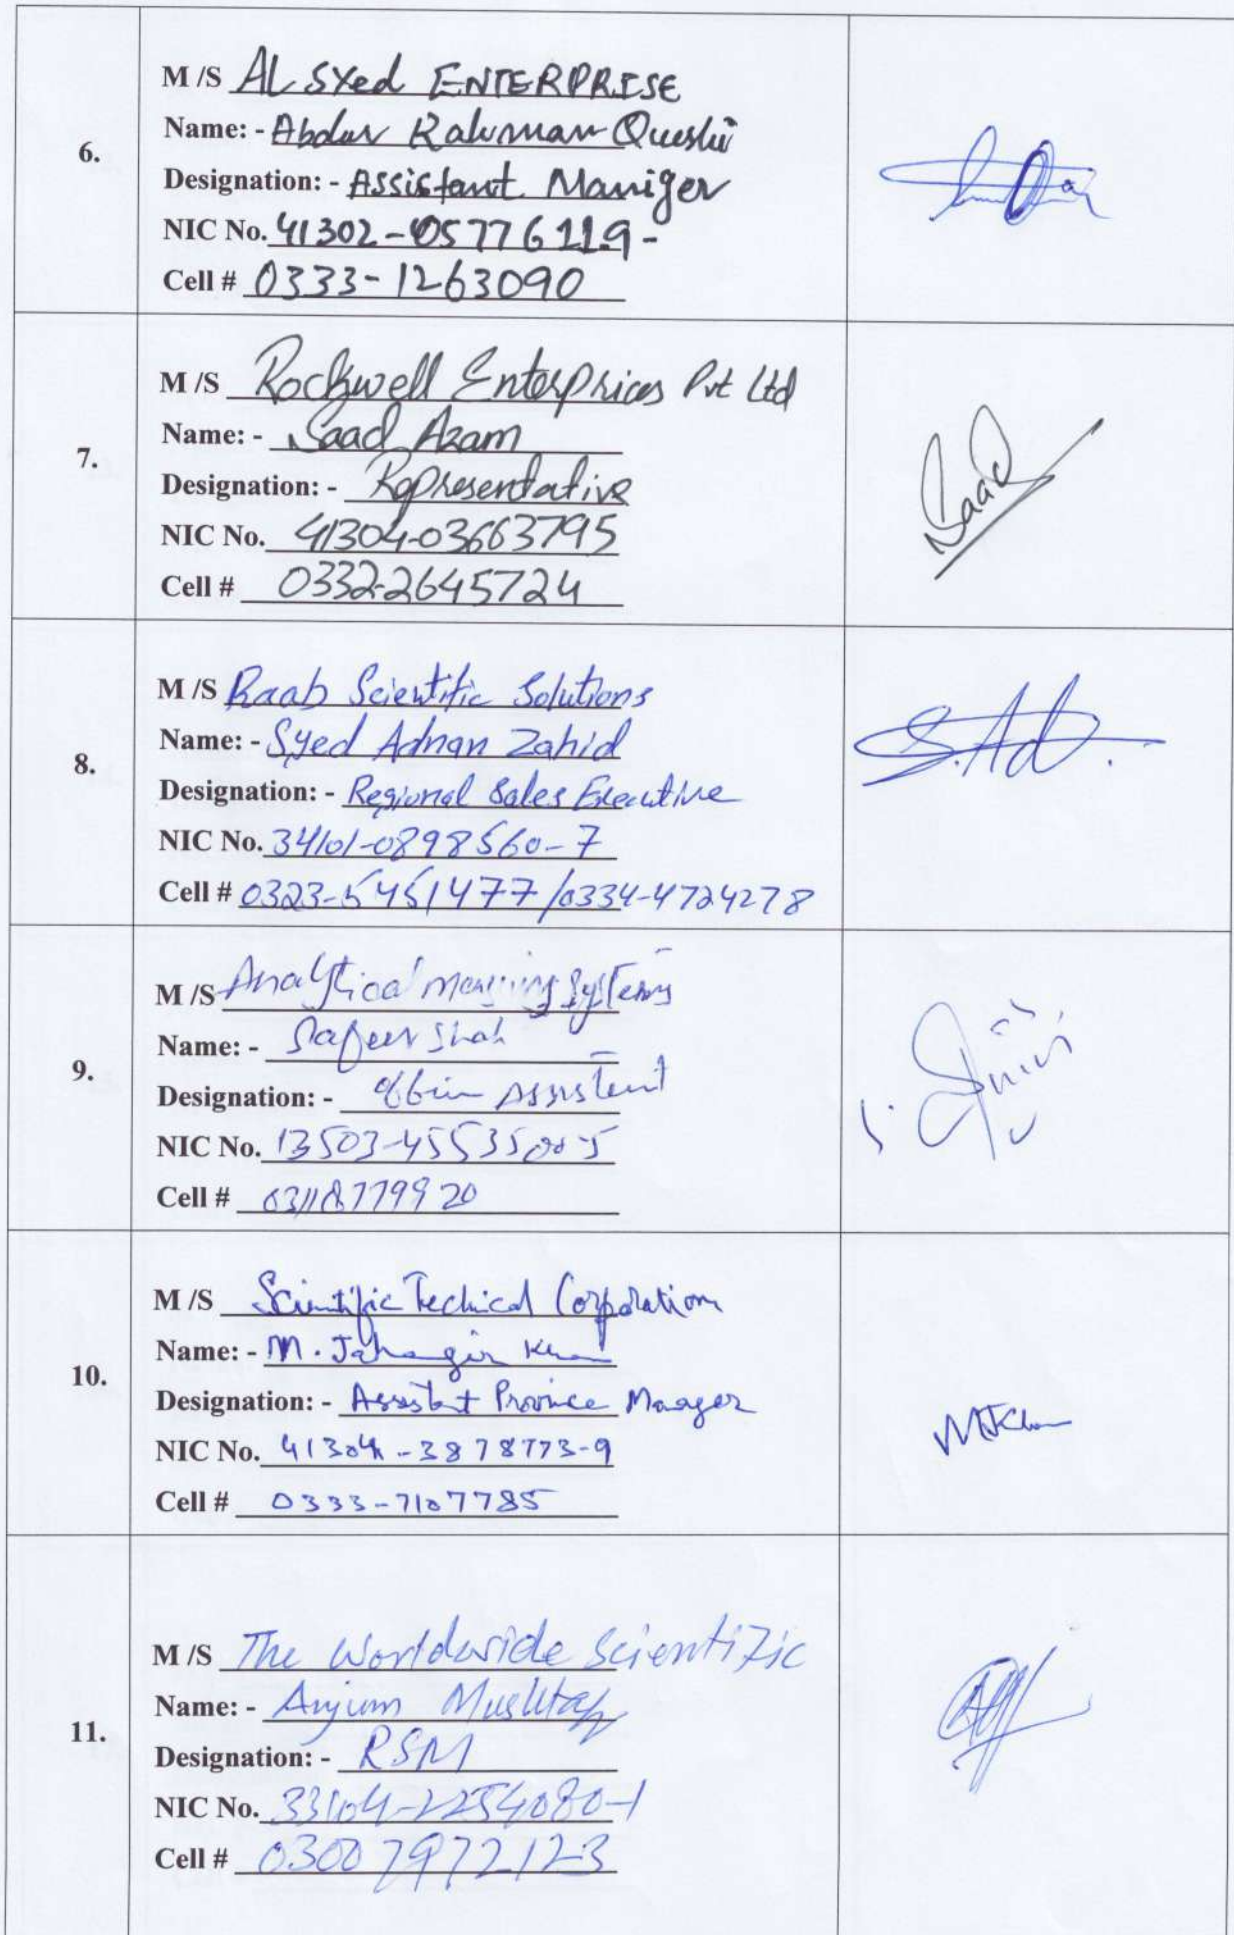 6.
M /S AL SYed ENTERPRISE
Name: - Abdur Rahman Queshi
Designation: - Assistant Maniger
NIC No. 41302-0577611.9-
Cell # 0333-1263090
7.
M /S Rockwell Enterprices Pvt Ltd
Name: - Saad Azam
Designation: - Representative
NIC No. 41304-03663795
Cell # 0332-2645724
Saad
8.
M /S Raab Scientific Solutions
Name: - Syed Adnan Zahid
Designation: - Regional Sales Executive
NIC No. 34101-0898560-7
Cell # 0323-5451477/0334-4724278
S.Ad.
9.
M /S Analytical Systems
Name: - Safeer Shah
Designation: - Assistent
NIC No.
Cell #
10.
M /S Scientific Techical Corporation
Name: - M. Jahangir Khan
Designation: - Assistant Province Manager
NIC No. 41304-3878773-9
Cell # 0333-7107785
MJKhan
11.
M /S The Worldwide Scientific
Name: - Anjum Mushtaq
Designation: - RSM
NIC No. 33104-2254080-1
Cell # 03007972123